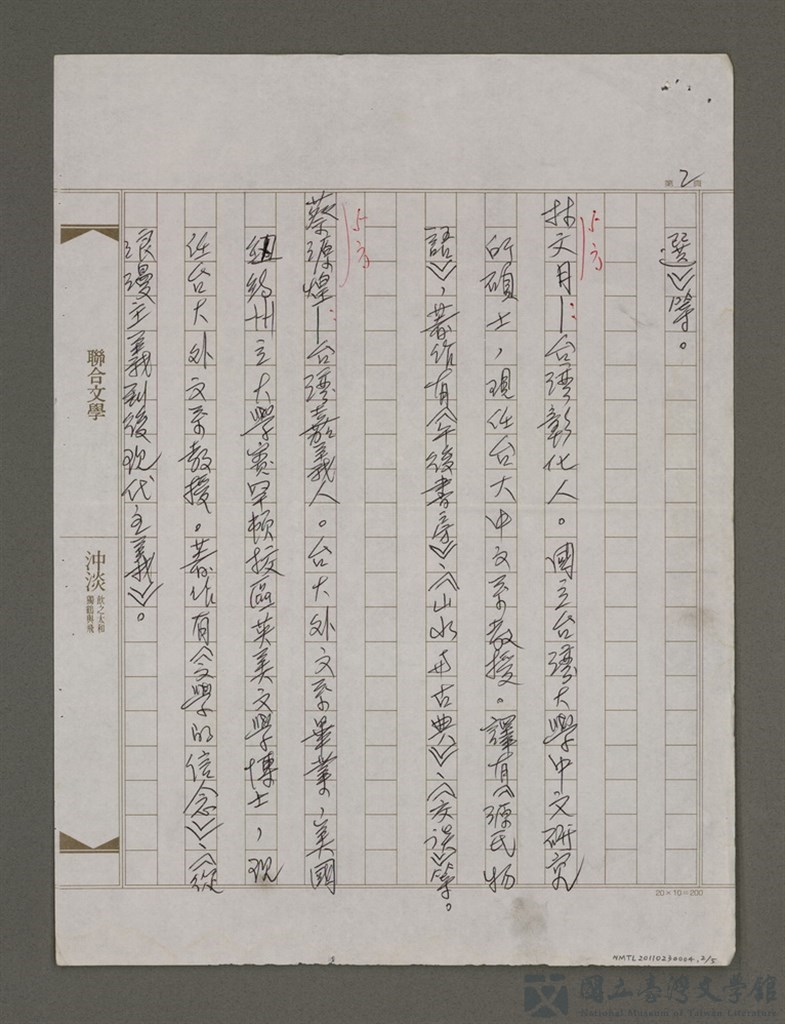 第2頁
選》等。
卜方
林文月—:台灣彰化人。國立台灣大學中文研究
所碩士,現任台大中文系教授。譯有《源氏物
語》,著作有《午後書房》、《山水与古典》、《交談》等。
卜方
蔡源煌—:台灣嘉義人。台大外文系畢業,美國
紐約州立大學賓罕頓校區英美文學博士,現
任台大外文系教授。著作有《文學的信念》、《從
浪漫主義到後現代主義》。
聯合文學
沖淡
飲之太和
獨鶴與飛
20×10=200
NMTL20110230004,2/5
國立臺灣文學館
National Museum of Taiwan Literature